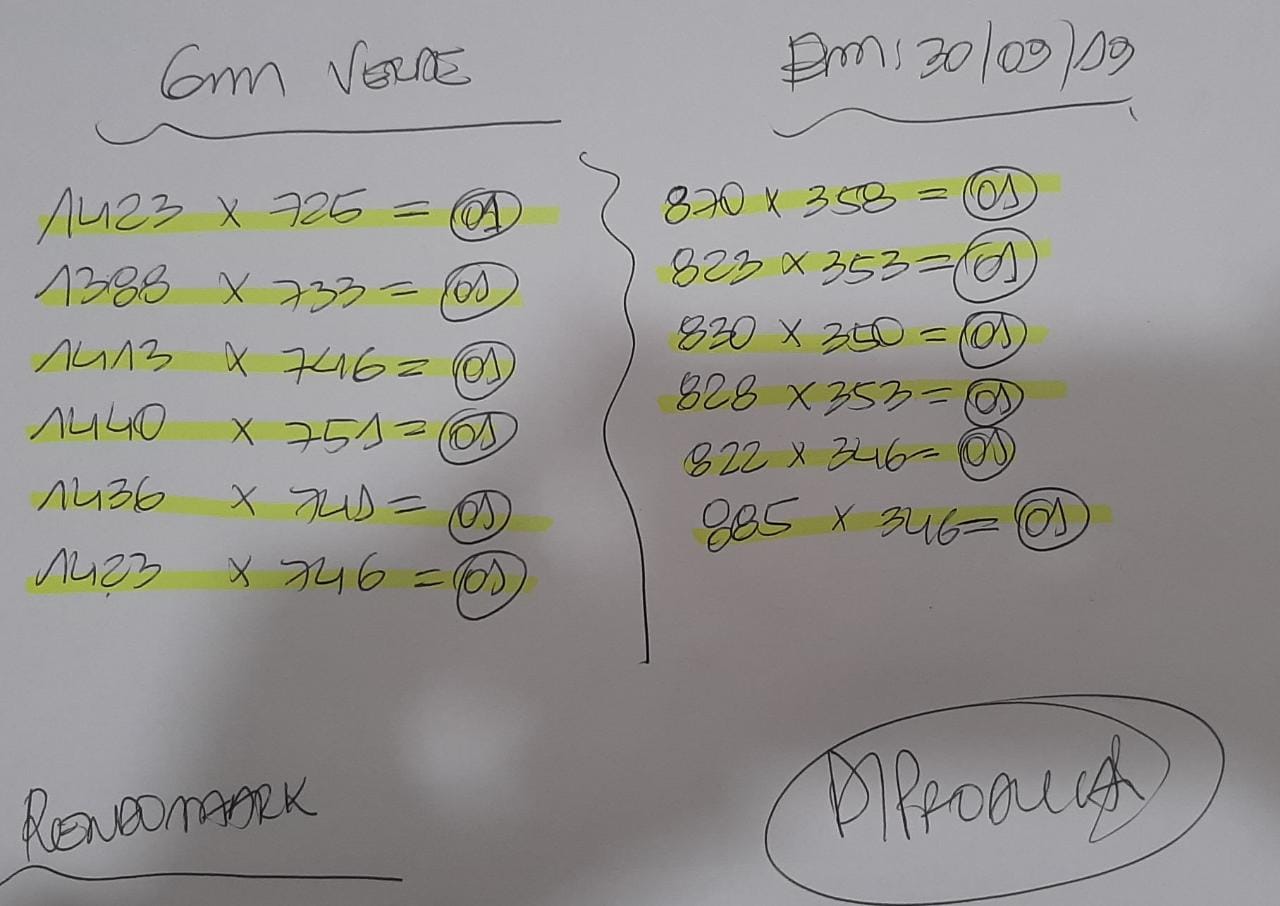 6mm VERDE
Em: 30/09/19
1423 x 725 = 01
1388 x 733 = 01
1413 x 746 = 01
1440 x 751 = 01
1436 x 741 = 01
1423 x 746 = 01
870 x 358 = 01
823 x 353 = 01
830 x 350 = 01
828 x 353 = 01
822 x 346 = 01
885 x 346 = 01